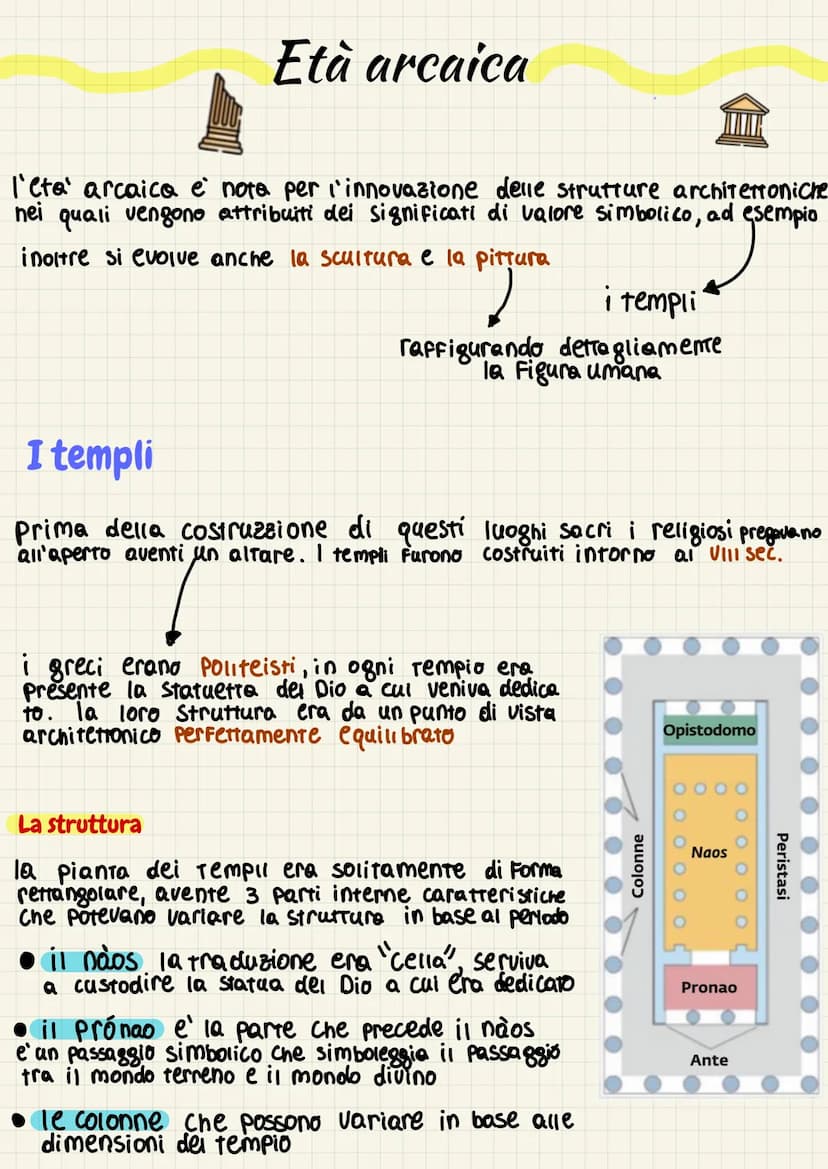 Età arcaica
l'età arcaica e' nota per l'innovazione delle strutture architettoniche
nei quali vengono attribuiti dei significati di valore simbolico, ad esempio
inoltre si evolve anche la scultura e la pittura
i templi
raffigurando dettagliamente
la figura umana
I templi
prima della costruzzione di questi luoghi sacri i religiosi pregavano
all'aperto aventi un altare. I templi furono costruiti intorno al VIII sec.
i greci erano politeisti, in ogni tempio era
presente la statuetta del Dio a cui veniva dedica
to. la loro struttura era da un punto di vista
architettonico perfettamente equilibrato
La struttura
la pianta dei templi era solitamente di forma
rettangolare, avente 3 parti interne caratteristiche
che potevano variare la struttura in base al periodo
• il nàos la traduzione era "cella", serviva
a custodire la statua del Dio a cui era dedicato
• il prónao e' la parte che precede il nàos
e' un passaggio simbolico che simboleggia il passaggio
tra il mondo terreno e il mondo divino
• le colonne che possono variare in base alle
dimensioni del tempio
Opistodomo
Naos
Colonne
Peristasi
Pronao
Ante